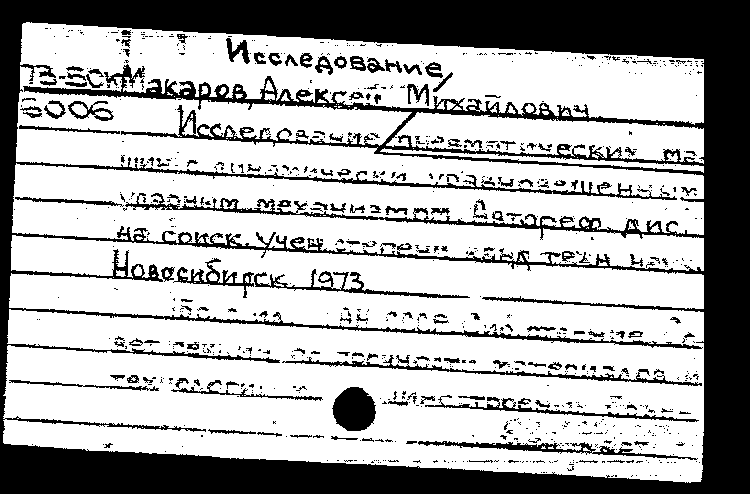 Исследование
73-5СК Макаров, Алексей Михайлович
6006
Исследование пневматических ма-
шин с динамически уравновешенным
ударным механизмом. Автореф. дис.
на соиск. учен. степени канд. техн. наук.
Новосибирск, 1973.
с. ил. АН СССР. Сиб. отд-ние.
секции по прочности материалов и
технологии